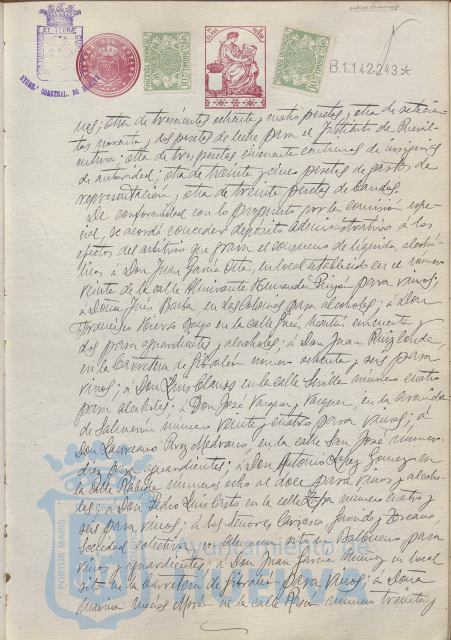 B.1.142.243*
nes; otra de trescientas ochenta y cuatro pesetas; otra de setecien-
tas noventa y dos pesetas de leche para el Instituto de Pueri-
cultura; otra de tres pesetas cincuenta céntimos de insignias
de autoridad; otra de treinta y cinco pesetas de gastos de
representación y otra de treinta pesetas de bandas.
De conformidad con lo propuesto por la comisión espe-
cial, se acordó conceder depósito administrativo á los
efectos del arbitrio que grava el consumo de líquidos alcohó-
licos á Don Juan García, en local establecido en el número
veinte de la calle Almirante Hernández Pinzón para vinos;
á Doña Inés Barba, en las Colonias para alcoholes; á Don
Francisco en la calle, cincuenta y
dos para aguardientes y alcoholes; á Don Juan Ruiz,
en la Carretera de Gibraleón número ochenta y seis para
vinos; á Don Luis en la calle Sevilla número cuatro
para alcoholes; á Don José Vázquez Vázquez, en la Avenida
de número veinte y cuatro para vinos; á
Don Laureano Pérez Medrano, en la calle San José número
diez para aguardientes; á Don Antonio López Gómez en
la calle Rábida números ocho al doce para vinos y alcoho-
les; á Don Pedro Luis en la calle número cuatro y
seis para vinos; á los Señores Carrasco
Sociedad colectiva, en almacén sito en para
vinos y aguardientes; á Don Juan García Muñoz en local
sito en la Carretera de Gibraleón para vinos; á Doña
en la calle número treinta y
Ayuntamiento de
HUELVA
PORTUS MARIS